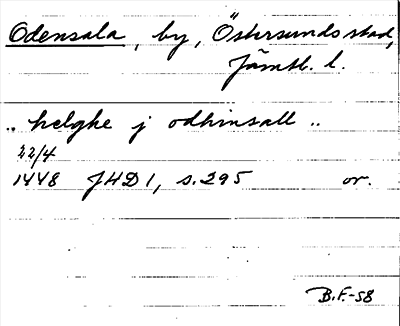 Odensala, by, Östersunds stad,
Jämtl. l.
.. helghe j odhinsall ..
22/4
1448 JHD 1, s. 295 or.
B.F.-58